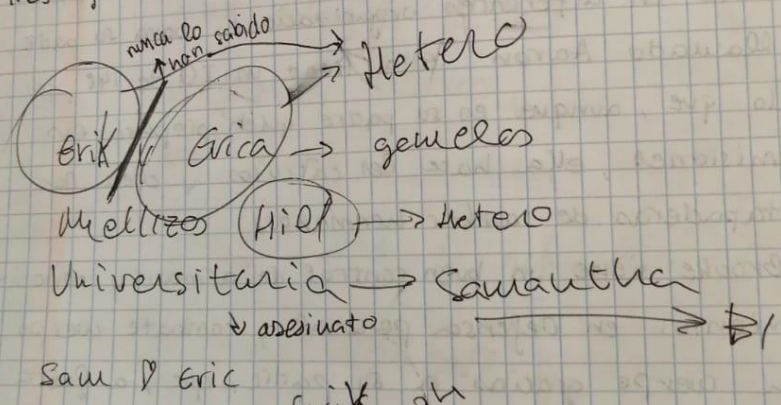 nunca lo
han sabido
Hetero
Erik / Erica → gemelos
Mellizos Hiel → Hetero
Universitaria → Samantha
↓ asesinato → BI
Sam ♡ Eric